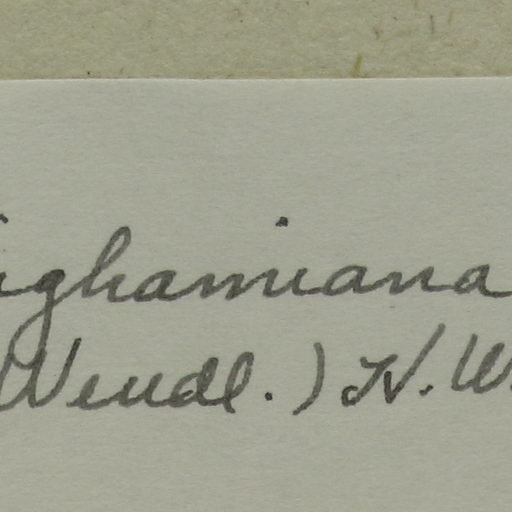 ighamiana
Wendl.) H. W